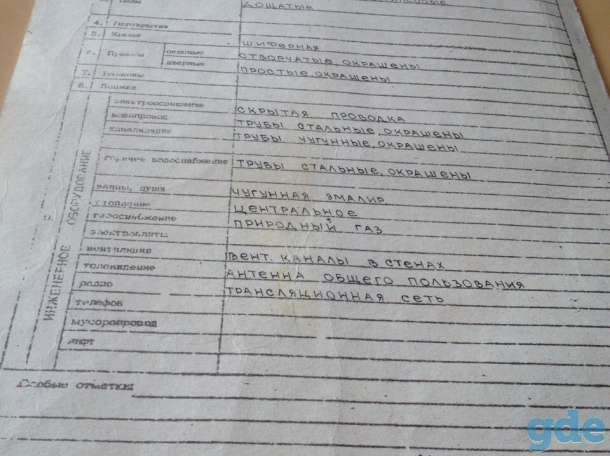 ДОЩАТЫЕ
4.
5. Кровля ШИФЕРНАЯ
6. Проемы оконные ОТВОРЧАТЫЕ, ОКРАШЕНЫ
дверные ПРОСТЫЕ, ОКРАШЕНЫ
7.
8.
ИНЖЕНЕРНОЕ ОБОРУДОВАНИЕ
электроосвещение СКРЫТАЯ ПРОВОДКА
водопровод ТРУБЫ СТАЛЬНЫЕ, ОКРАШЕНЫ
канализация ТРУБЫ ЧУГУННЫЕ, ОКРАШЕНЫ
горячее водоснабжение ТРУБЫ СТАЛЬНЫЕ, ОКРАШЕНЫ
ванны, души ЧУГУННАЯ ЭМАЛИР.
отопление ЦЕНТРАЛЬНОЕ
газоснабжение ПРИРОДНЫЙ ГАЗ
электроплиты
вентиляция ВЕНТ. КАНАЛЫ В СТЕНАХ
телевидение АНТЕННА ОБЩЕГО ПОЛЬЗОВАНИЯ
радио ТРАНСЛЯЦИОННАЯ СЕТЬ
телефон
мусоропровод
лифт
Особые отметки
gde